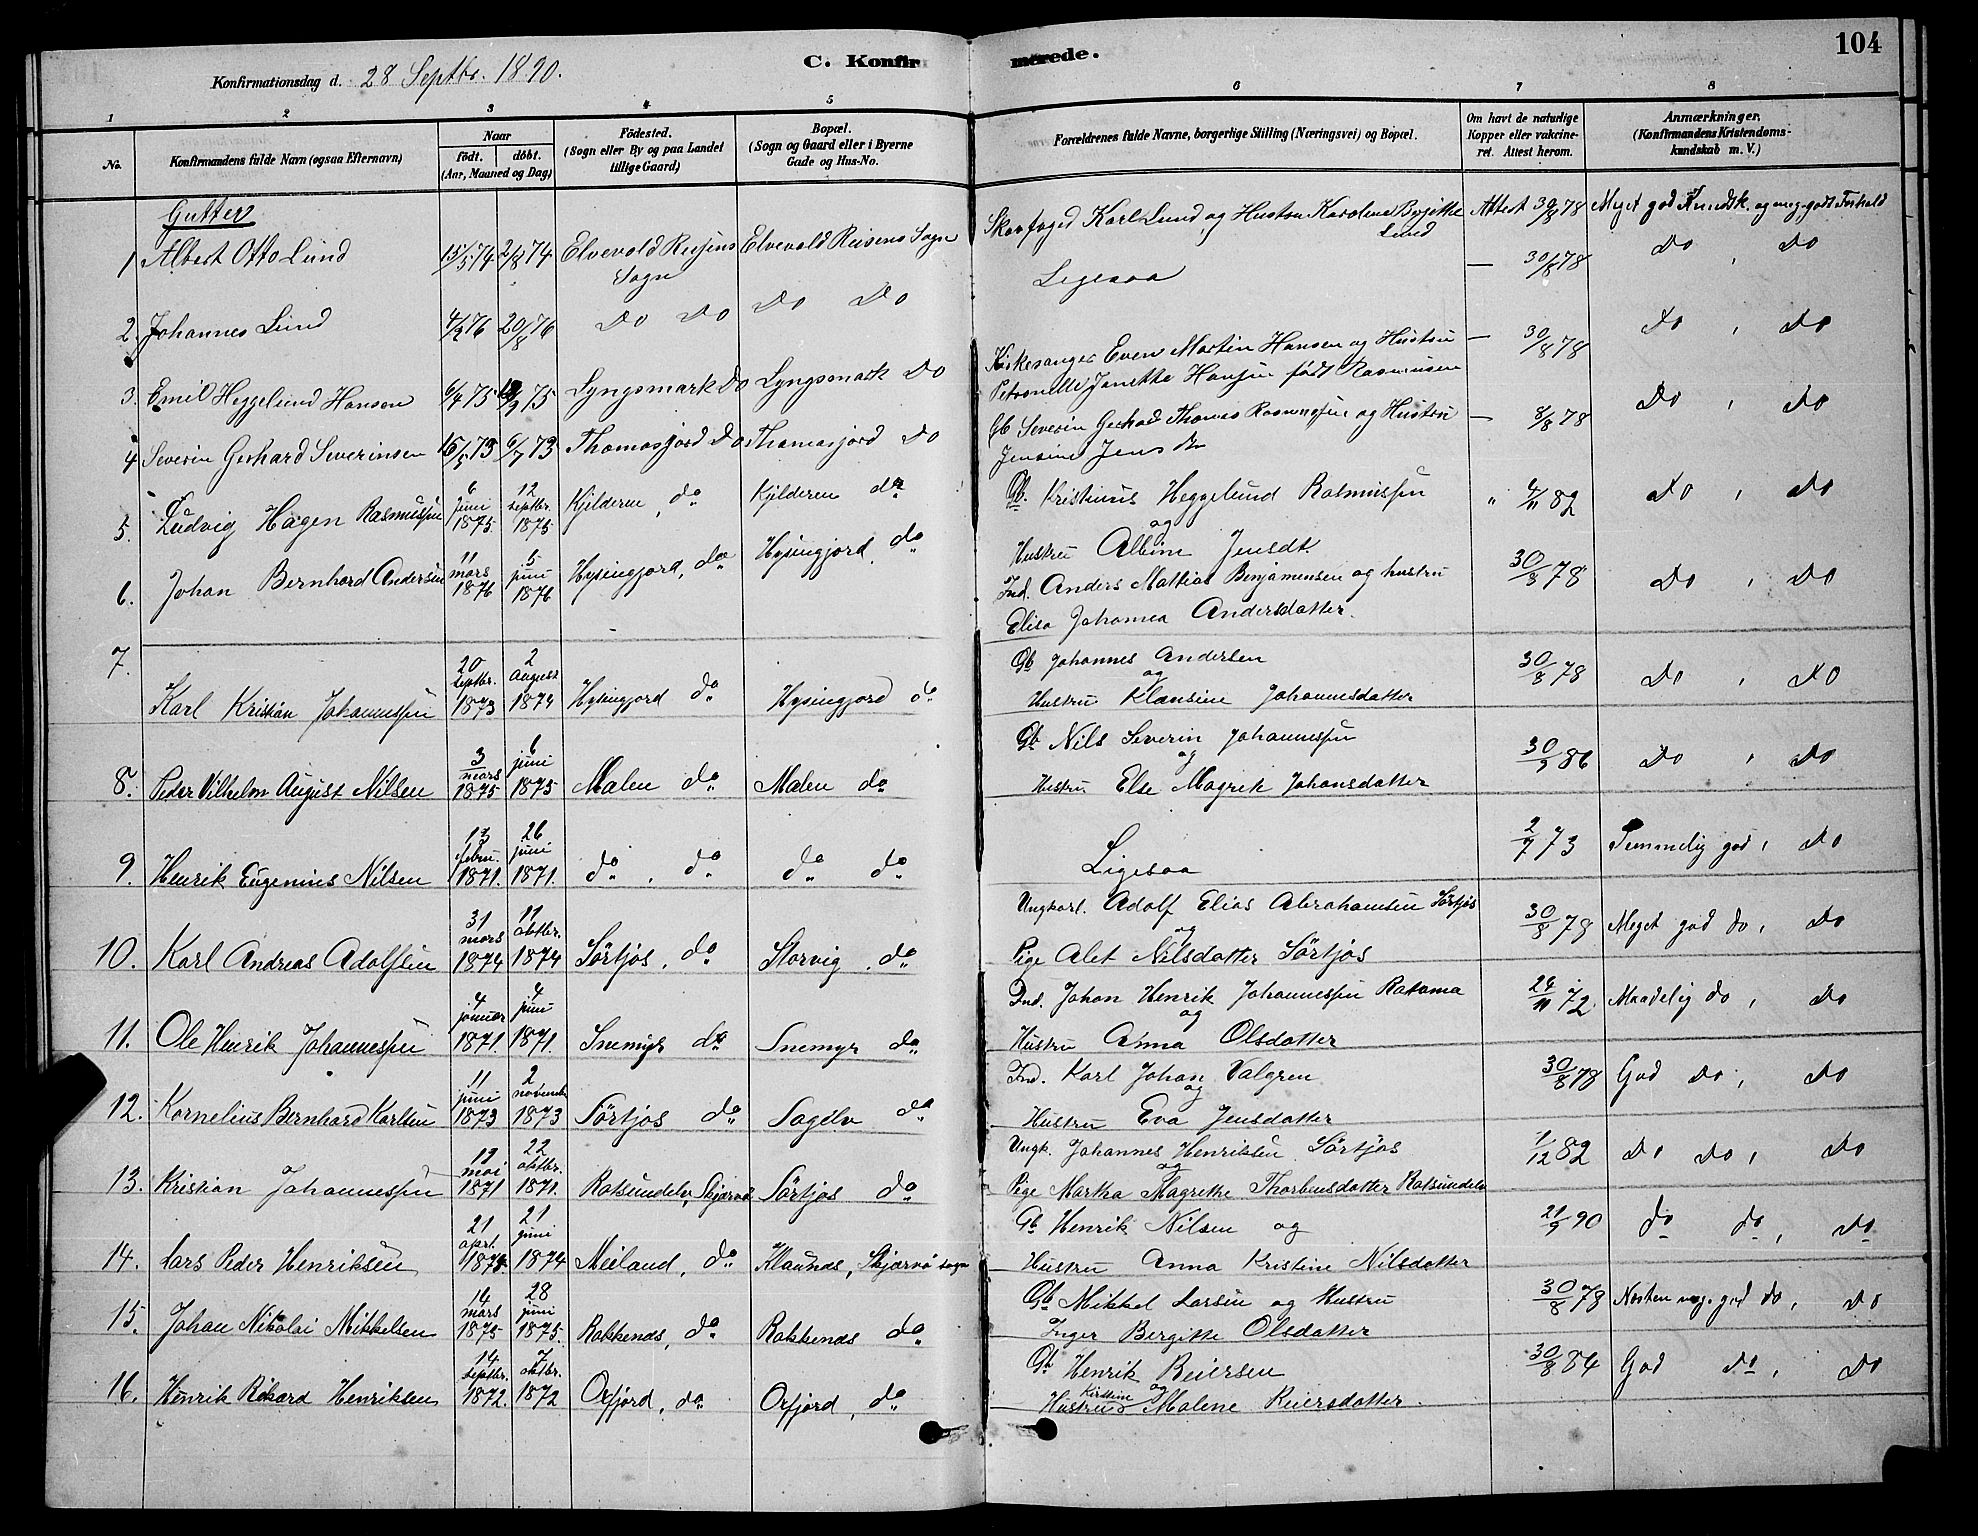 Konfirmationsdag d. 28 Septbr. 1890.
C. Konfirmerede.
104
1 2 3 4 5 6 7 8
No.
Konfirmandens fulde Navn (ogsaa Efternavn)
Naar
födt. döbt.
(Aar, Maaned og Dag)
Födested.
(Sogn eller By og paa Landet
tillige Gaard)
Bopæl.
(Sogn og Gaard eller i Byerne
Gade og Hus-No.
Forældrenes fulde Navne, borgerlige Stilling (Næringsvei) og Bopæl.
Om havt de naturlige
Kopper eller vakcine-
ret. Attest herom.
Anmærkninger.
(Konfirmandens Kristendoms-
kundskab m. V.)
Gutter
1 Albert Otto Lund 15/5 74 2/8 74 Elvevold Reisens Sogn Elvevold Reisens Sogn Skovfoged Karl Lund og Hustru Karoline Birgitte Lund Attest 30/8 78 Meget god Kundsk. og meg. godt Forhold
2. Johannes Lund 4/2 76 20/8 76 Do Do Do Do Ligesaa — 30/8 78 Do , Do
3. Emil Heggelund Hansen 6/4 75 /9 75 Lyngsmark Do Lyngsmark Do Kirkesanger Even Martin Hansen og Hustru
Petronelle Janette Hansen födt Rasmussen — 30/8 78 Do , Do
4 Severin Gerhard Severinsen 15/5 73 6/7 73 Thomasjord Do Thomasjord Do Gb Severin Gerhard Thomas Rasmussen og Hustru
Jensine Jens Dr — 8/8 78 Do , Do
5. Ludvig Hagen Rasmussen 6 Juni 1875. 12 septbr. 1875 Kjelderen, do Kjelderen do Gb. Kristinus Heggelund Rasmussen
og
Hustru Albine Jensdt. " 4/11 82 Do , Do
6. Johan Bernhard Andersen 11 mars 1876 5 juni 1876 Hysingjord, do Hysingjord, do Ind. Anders Mathias Benjamensen og hustru
Elisa Johanna Andersdatter. 30/8 78 Do , Do
7. Karl Kristian Johannessen 20 septbr. 1873 2 august 1874 Hysingjord do Hysingjord do Gb Johannes Andersen
og
Hustru Klausine Johannesdatter 30/8 78 Do , Do
8. Peder Vilhelm August Nilsen 3 mars 1875 6 juni 1875 Malen do Malen do Gb Nils Severin Johannessen
og
Hustru Else Magrek Johansdatter 30/9 86 Do , Do
9. Henrik Eugenius Nilsen 13 febru. 1871. 26 juni 1871. do , do do do Ligesaa 2/7 73 Temmelig god, Do
10. Karl Andreas Adolfsen 31 mars 1874 11 oktbr. 1874 Sörtjos, do Storvig, do Ungkarl. Adolf Elias Abrahamsen Sörtjos
og
Pige Alet Nilsdatter Sörtjos 30/8 78 Meget god do, Do
11. Ole Henrik Johannessen 4 januar 1871. 4 juni 1871. Snemyr do Snemyr do Ind. Johan Henrik Johannessen Ratama
og
Hustru Anna Olsdatter 24/11 72. Maadelig do, Do
12. Kornelius Bernhard Karlsen 11 juni 1873 2 novemb 1873 Sörtjos do Sagelv do Ind. Karl Johan Valgren
og
Hustru Eva Jensdatter 30/8 78 God do, Do
13. Kristian Johannessen 19 mai 1871 22 oktbr. 1871. Rotsundelv, Skjærvö Sörtjos do Ungk. Johannes Henriksen Sörtjos
og
Pige Martha Magrethe Thorbensdatter Rotsundelv 1/12 82 Do Do, Do
14. Lars Peder Henriksen 21 april 1874 21 juni 1874 Meiland, do Hlaunds, Skjærvö sogn Gb Henrik Nilsen og
Hustru Anna Kristine Nilsdatter 21/9 90 do do, do
15. Johan Nikolai Mikkelsen 14 mars 1875 28 juni 1875. Rakkenes, do Rakkenes do Gb Mikkel Larsen og Hustru
Inger Bergitte Olsdatter 30/8 78 Næsten meg. god do, Do
16. Henrik Rikard Henriksen 14 septbr. 1872. 7 oktbr. 1872 Oxfjord, do Oxfjord, do Gb Henrik Beiersen
og
Hustru Kirstine Malene Reiersdatter. 30/8 84 God Do, Do